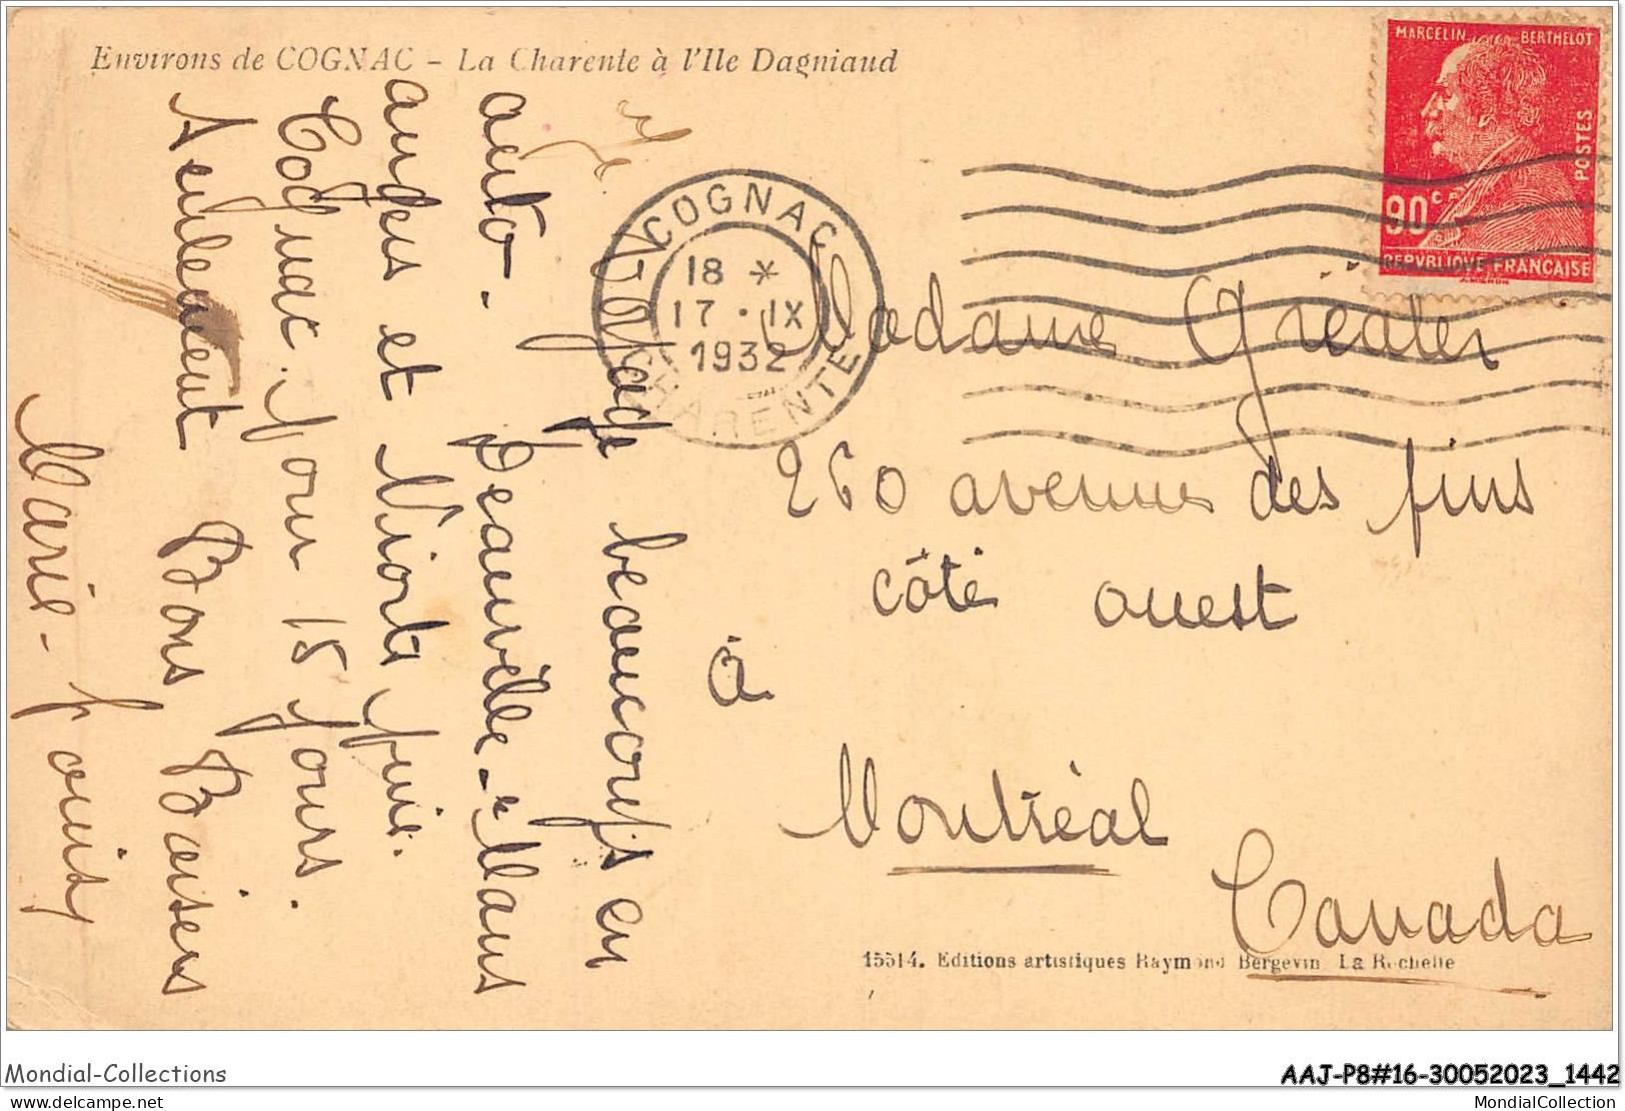 Environs de COGNAC - La Charente à l'Ile Dagniaud
MARCELIN BERTHELOT
POSTES
90 c
REPVBLIQVE FRANÇAISE
COGNAC
18 *
17 · IX
1932
CHARENTE
Madame
260 avenue des pins
côté ouest
à
Montréal
Canada
Je voyage beaucoups en
auto - Deauville - Mans
anges et Niorts puis
Cognac pour 15 jours.
Seulement Bons Baisers
Marie-Louise
15514. Editions artistiques Raymond Bergevin La Rochelle
Mondial-Collections
AAJ-P8#16-30052023_1442
www.delcampe.net
MondialCollection